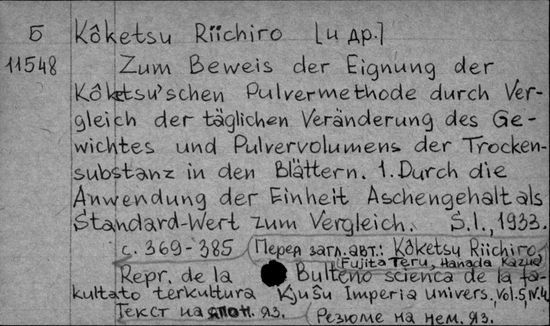 Б Kôketsu Riichiro [и др.]
11548 Zum Beweis der Eignung der
Kôketsu'schen Pulvermethode durch Ver-
gleich der täglichen Veränderung des Ge-
wichtes und Pulvervolumens der Trocken-
substanz in den Blättern. 1. Durch die
Anwendung der Einheit Aschengehalt als
Standard-Wert zum Vergleich. S.l., 1933.
с. 369-385 (Перед загл. авт.: Kôketsu Riichiro,
Fujita Teru, Hanada Kazua
Repr. de la Bulteno scienca de la fa-
kultato terkultura Kjuŝu Imperia univers., Vol.5, N.4
Текст на япон. яз. (Резюме на нем. яз.